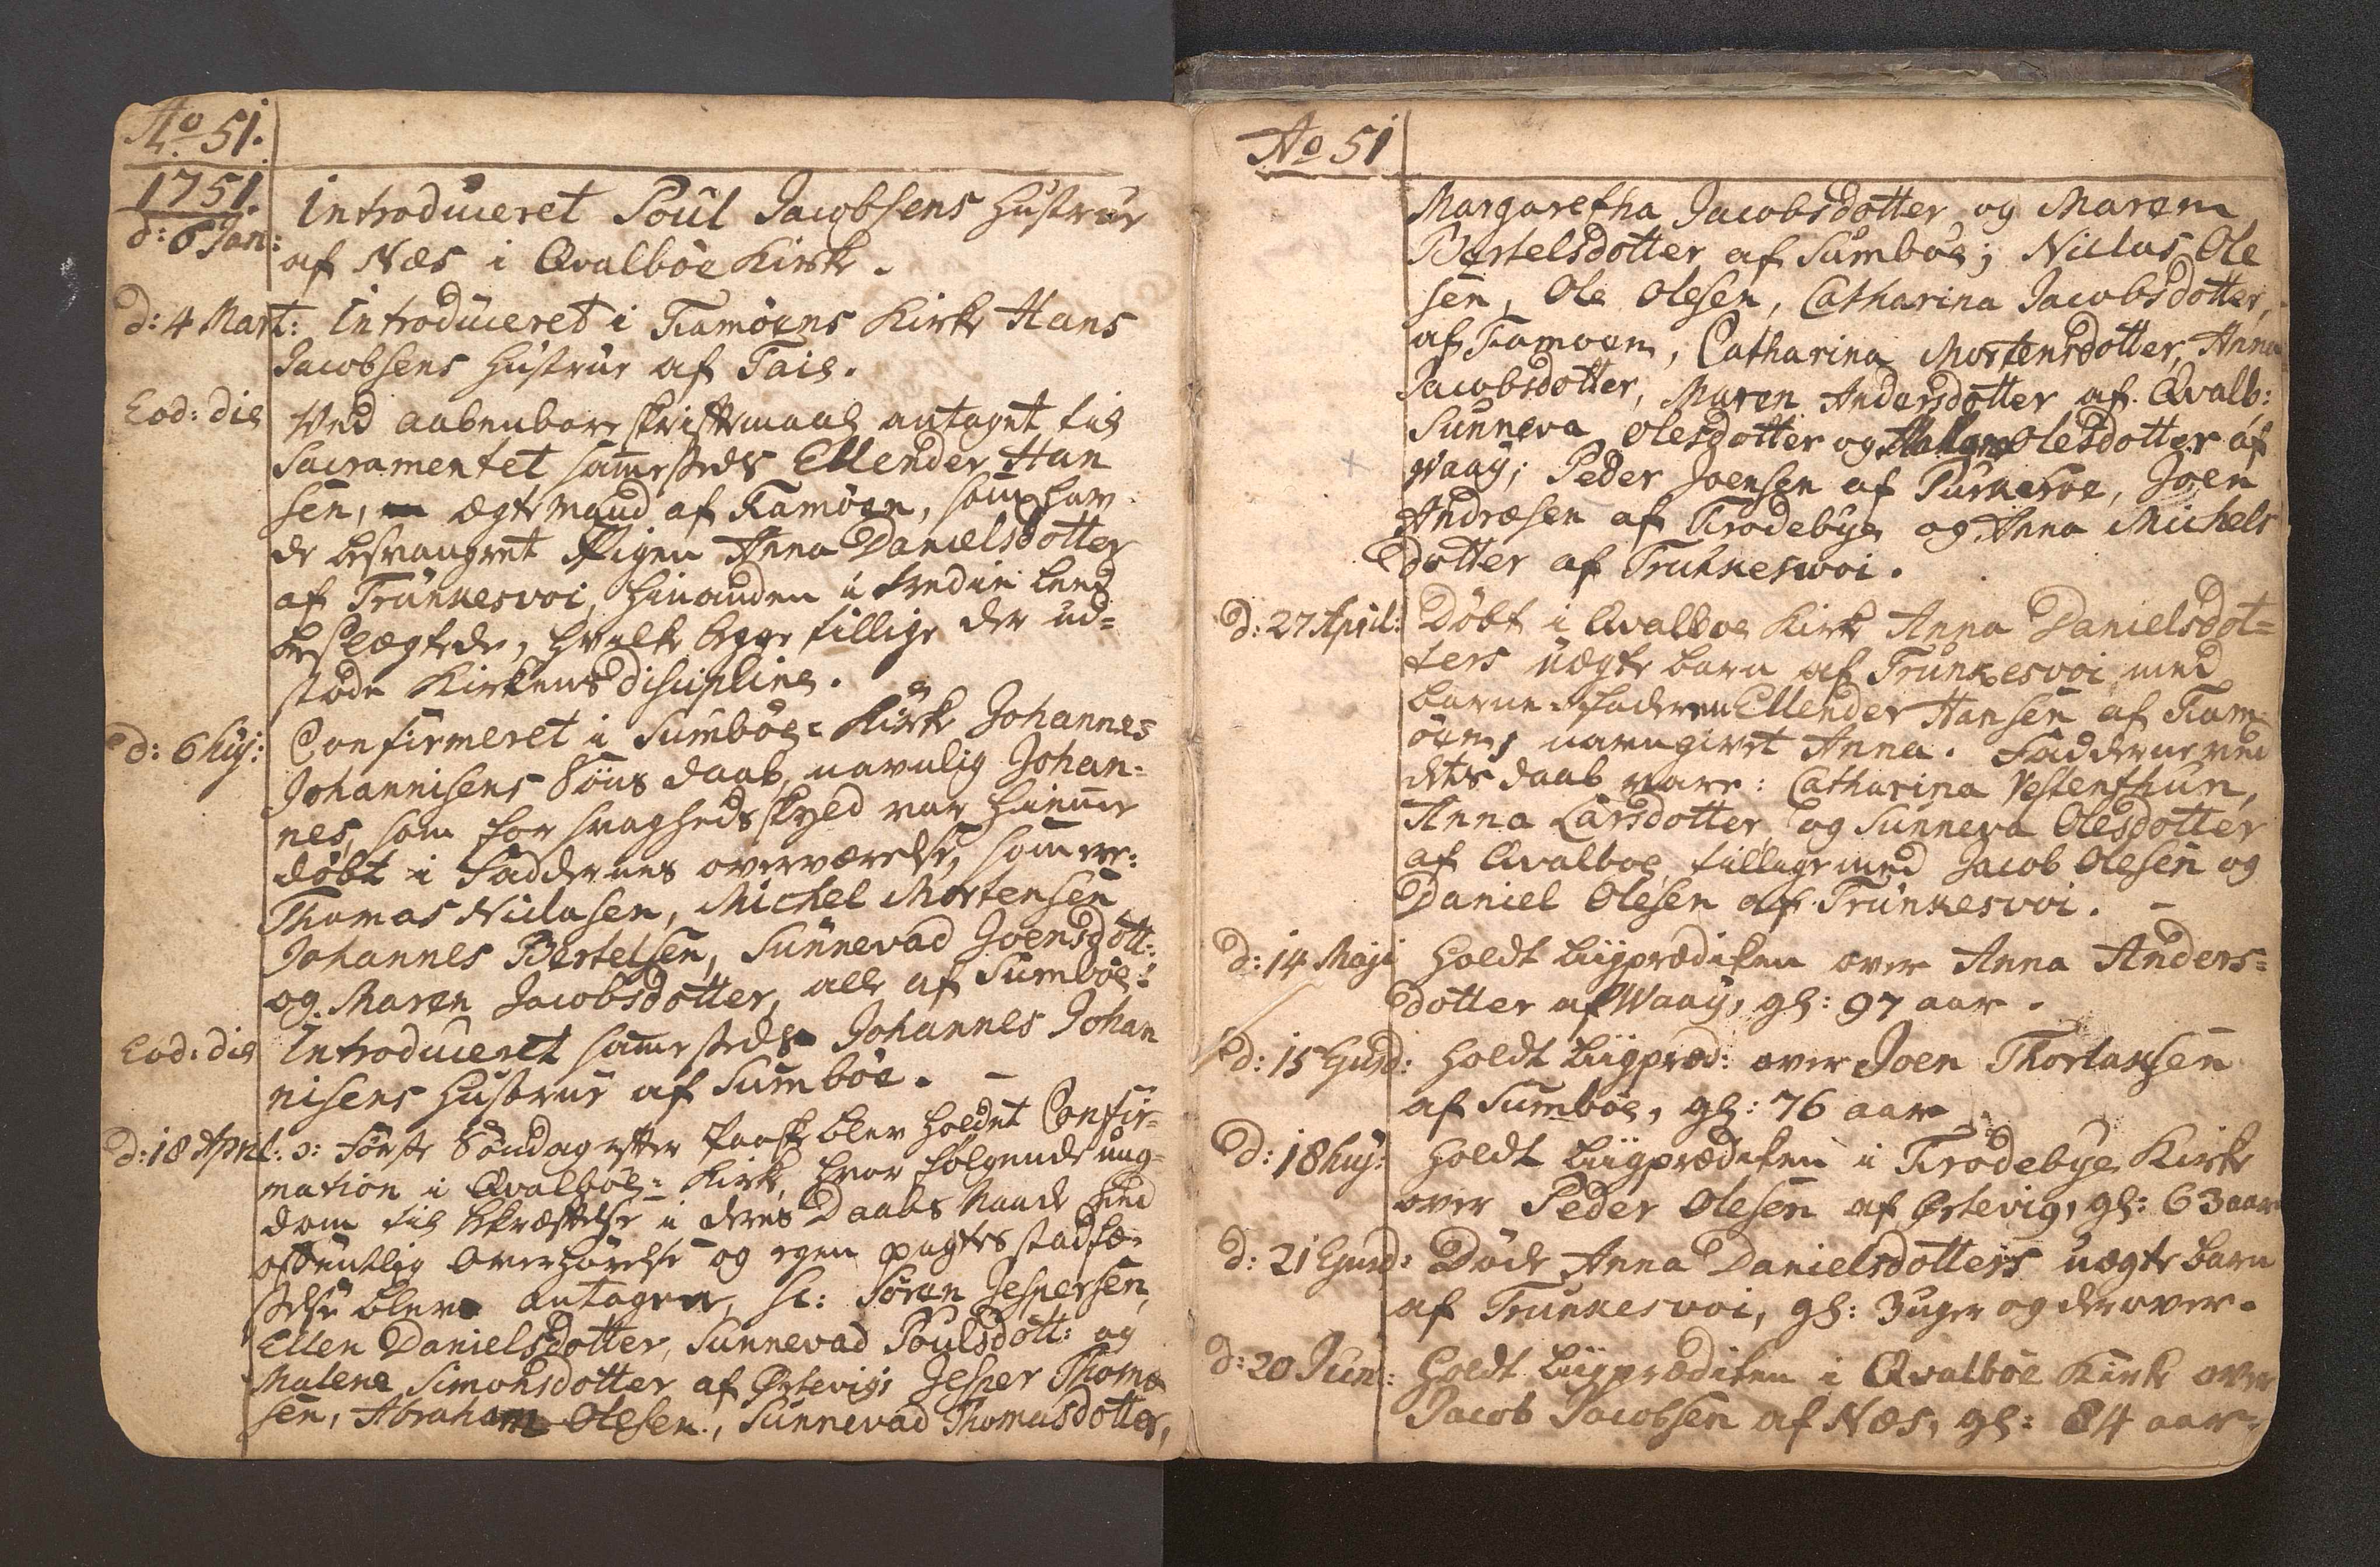 Ao 51.
1751.
d: 6 Jan: Introduceret Poul Jacobsens Hustrue
af Næs i Qvalböe Kirke.
d: 4 Mart: Introduceret i Famöens Kirke Hans
Jacobsens Hustrue af Faie.
Eod: die Ved aabenbare skriftemaal antaget til
Sacramentet sammesteds Ellender Han
sen, ægtemand af Famöen, som hav
de besvangret Pigen Anna Danielsdotter
af Trunnesvoi, hinanden i tredie leed
beslægtede, hvilke begge tillige der ud-
stode Kirkens disciplin.
d: 6 huj: Confirmeret i Sumböe Kirke Johannes
Johannisens Söns daab, navnlig Johan-
nes, som for svagheds skyld var hiemme
döbt i Faddernes overværelse, som ere:
Thomas Niclasen, Michel Mortensen
Johannes Bertelsen, Sunnevad Joensdott:
og Maren Jacobsdotter, alle af Sumböe.
Eod: die Introduceret sammesteds Johannes Johan
nisens Hustrue af Sumböe. –
d: 18 April: ɔ: Förste Söndag efter Paaske blev holdet Confir-
mation i Qvalböe Kirke, hvor fölgende ung-
dom til bekræftelse i deres Daabs Naade ved
offentlig Overhörelse og egen pagtes stadfæ-
stelse bleve antagen, sc: Sören Jespersen,
Ellen Danielsdotter, Sunnevad Poulsdott: og
Malene Simonsdotter af Örtevig; Jesper Thoma
sen, Abraham Olesen, Sunnevad Thomasdotter,
Ao 51
Margaretha Jacobsdotter og Maren
Bertelsdotter af Sumböe; Niclas Ole
sen, Ole Olesen, Catharina Jacobsdotter,
af Famoen, Catharina Mortensdotter, Anna
Jacobsdotter, Maren Andersdotter af Qvalb:
Sunneva Olesdotter og Olesdotter af
Waaÿ; Peder Joensen af Purkeroe, Joen
Andræsen af Frodebye og Anna Michels
dotter af Trunnesvoi.
d: 27 April: Döbt i Qvalboe Kirke Anna Danielsdot-
ters uægte barn af Trunnesvoi med
barnefaderen Ellender Hansen af Fam-
öen, navngivet Anna. Fadderne ved
dets daab vare: Catharina Vestenthun,
Anna Larsdotter og Sunneva Olesdotter
af Qvalboe, tillige med Jacob Olesen og
Daniel Olesen af Trunnesvoi. –
d: 14 Maji Holdt Liigprædiken over Anna Anders-
dotter af Waaÿ, gl: 97 aar.
d: 15 Ejusd: Holdt Liigpræd: over Joen Thorlaksen
af Sumböe, gl: 76 aar
d: 18 huj: Holdt Liigprædiken i Frodebye Kirke
over Peder Olesen af Örtevig, gl: 63 aar
d: 21 Ejusd: Döde Anna Danielsdotters uægte barn
af Trunnesvoi, gl: 3 uger og derover.
d: 20 Jun: Holdt Liigprædiken i Qvalböe Kirke over
Jacob Jacobsen af Næs, gl: 84 aar.